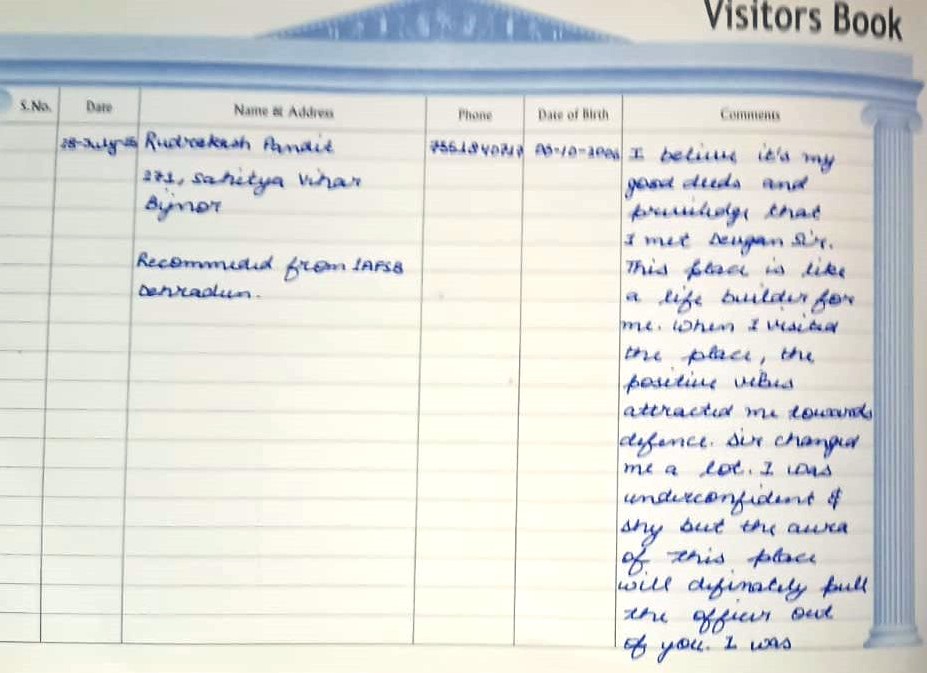 Visitors Book
S.No. Date Name & Address Phone Date of Birth Comments
28-July-25 Rudraksh Pandit I believe it's my
271, Sahitya Vihar good deeds and
Bijnor privilidge that
I met Deugan Sir.
Recommedid from 1AFSB This place is like
Dehradun. a life builder for
me. When I visited
the place, the
positive vibes
attracted me towards
defence. Sir changed
me a lot. I was
underconfident &
shy but the aura
of this place
will definately pull
the officer out
of you. I was